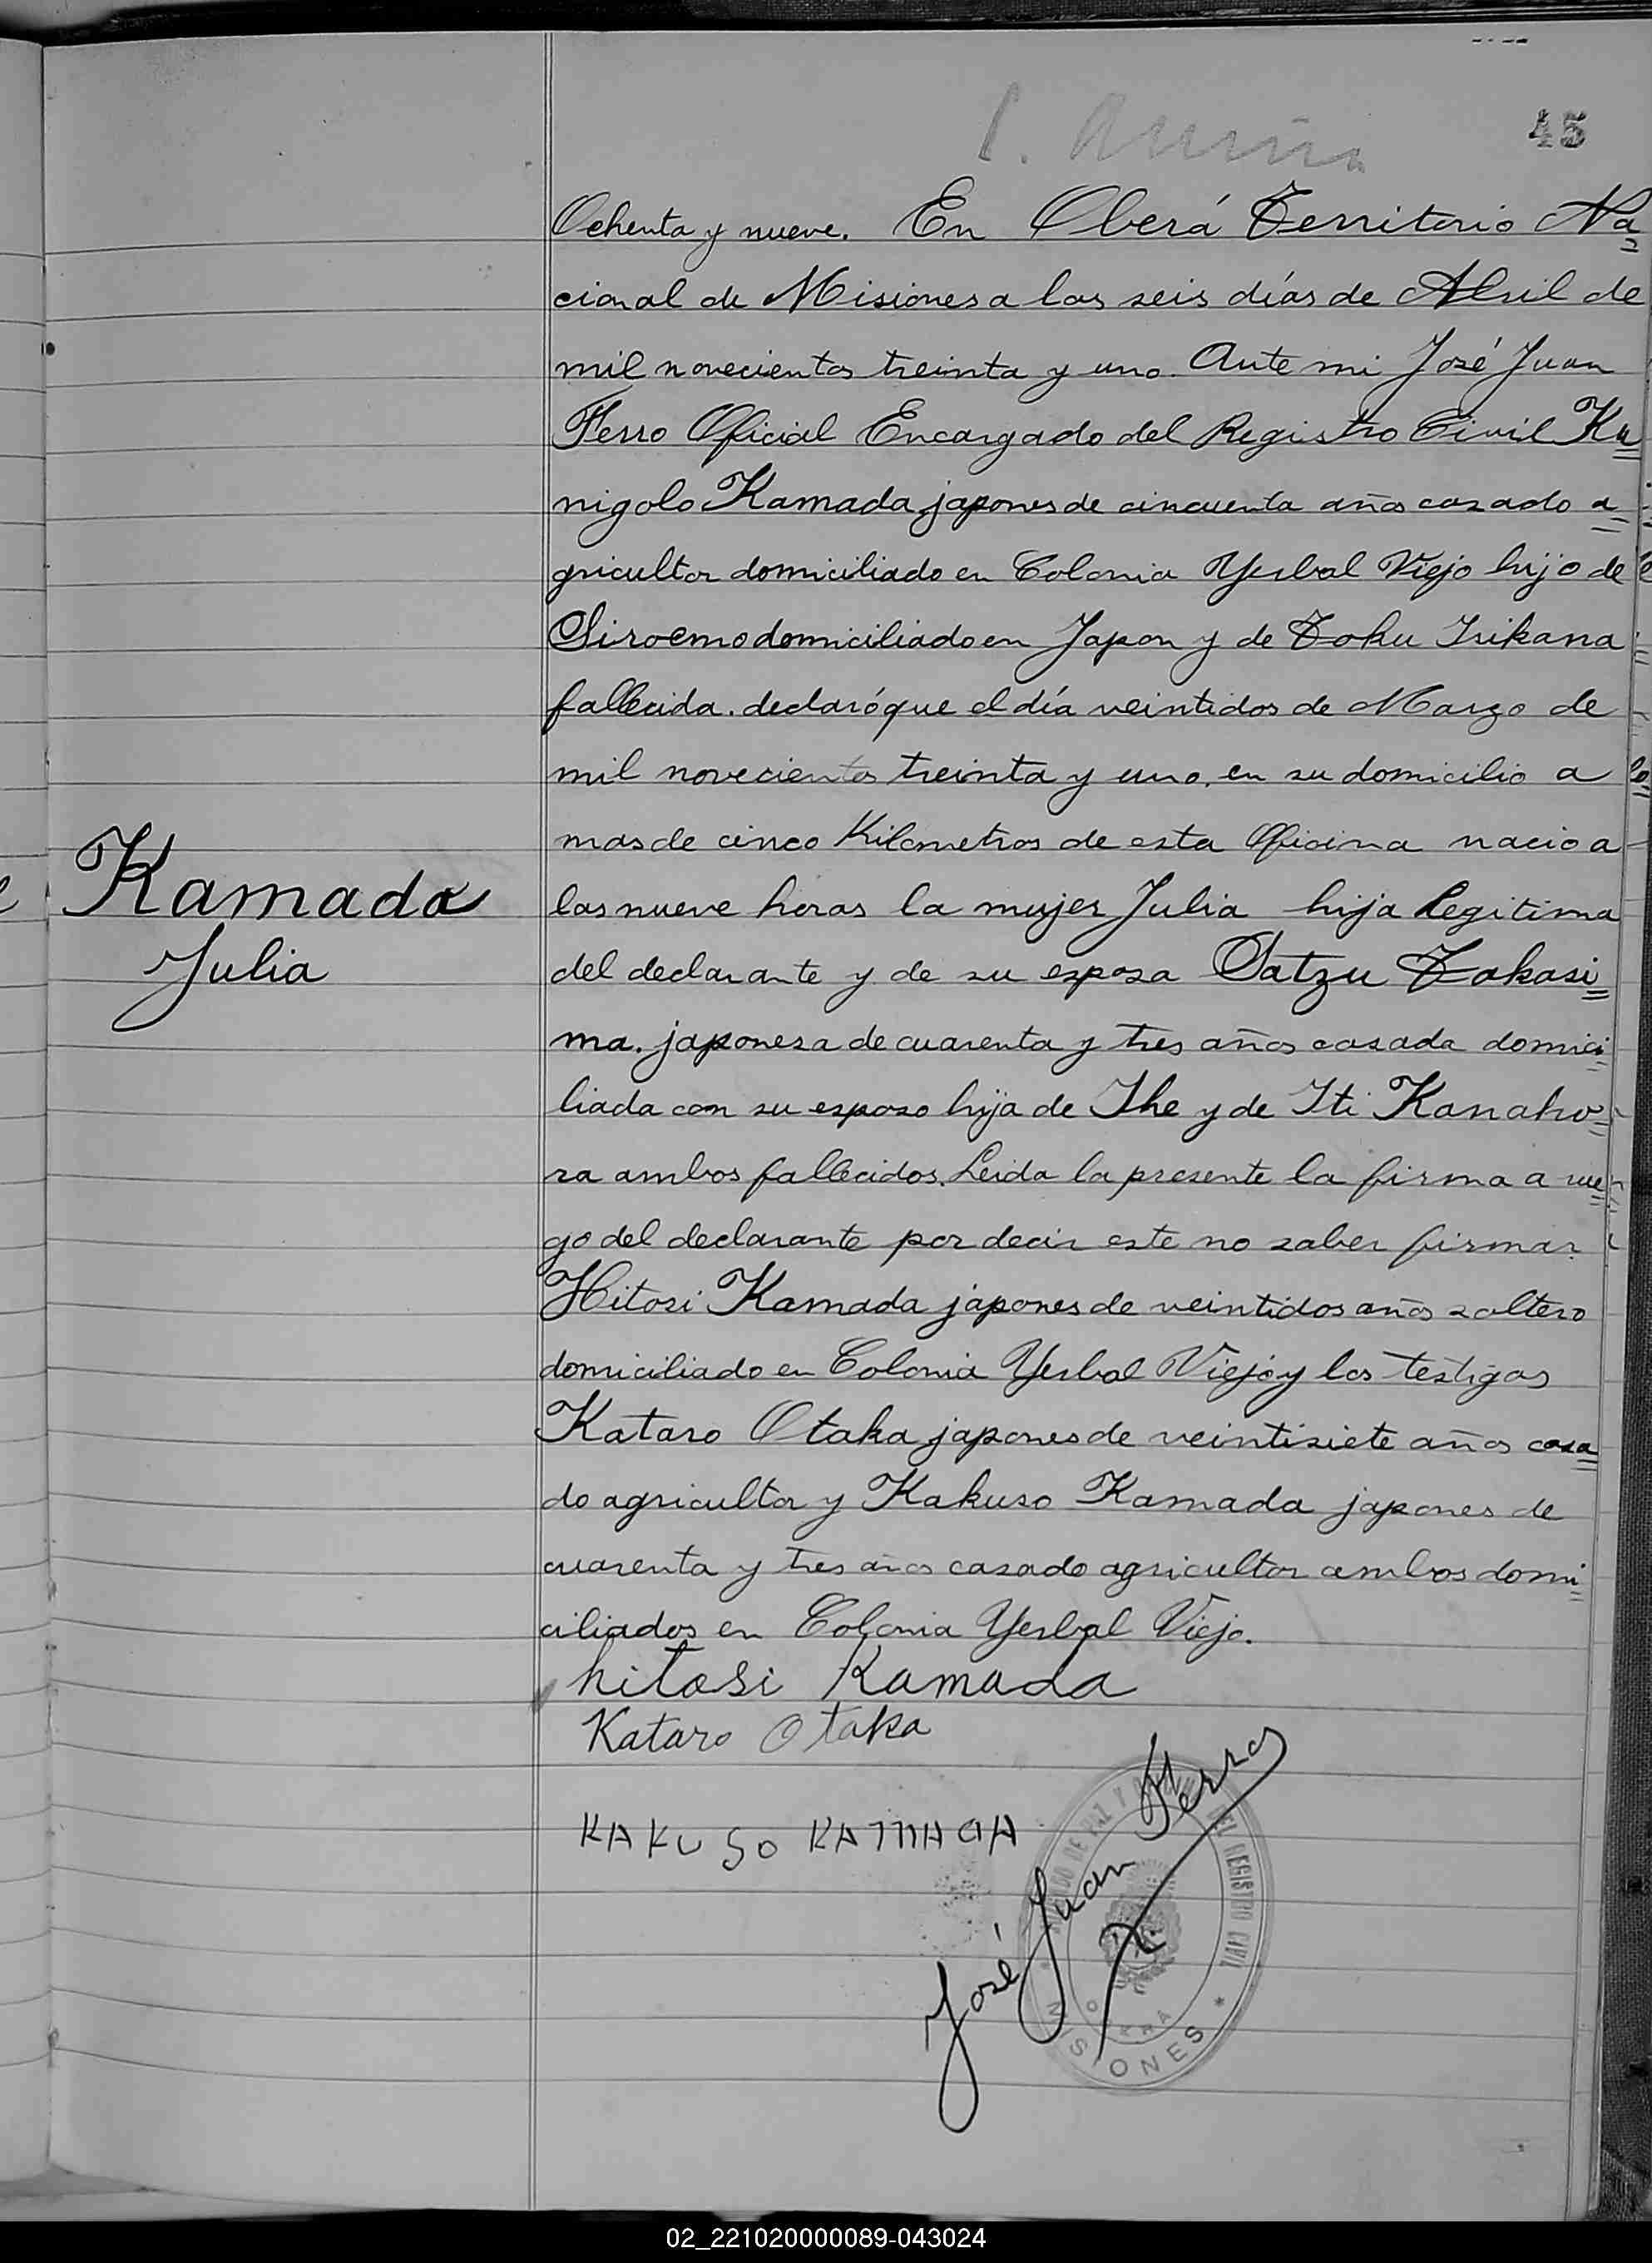 45
Ochenta y nueve. En Oberá Territorio Na=
cional de Misiones a los seis días de Abril de
mil novecientos treinta y uno. Ante mi José Juan
Ferro Oficial Encargado del Registro Civil Ku=
nigolo Kamada japones de cincuenta años casado a=
gricultor domiciliado en Colonia Yerbal Viejo hijo de
Siroemo domiciliado en Japon y de Toku Irikana
fallecida. declaró que el día veintidos de Marzo de
mil novecientos treinta y uno. en su domicilio a
mas de cinco Kilometros de esta Oficina nacio a
Kamada
Julia
las nueve horas la mujer Julia hija legitima
del declarante y de su esposa Satzu Takasi=
ma. japonesa de cuarenta y tres años casada domici=
liada con su esposo hija de Ihe y de Iti Kanaho=
ra ambos fallecidos. Leida la presente la firma a rue=
go del declarante por decir este no saber firmar.
Hitosi Kamada japones de veintidos años soltero
domiciliado en Colonia Yerbal Viejo y los testigos
Kataro Otaka japones de veintisiete años casa=
do agricultor y Kakuso Kamada japones de
cuarenta y tres años casado agricultor ambos domi=
ciliados en Colonia Yerbal Viejo.
hitosi Kamada
Kataro Otaka
KAKUSO KAMADA
José Juan Ferro
DEL REGISTRO CIVIL
MISIONES
02_221020000089-043024